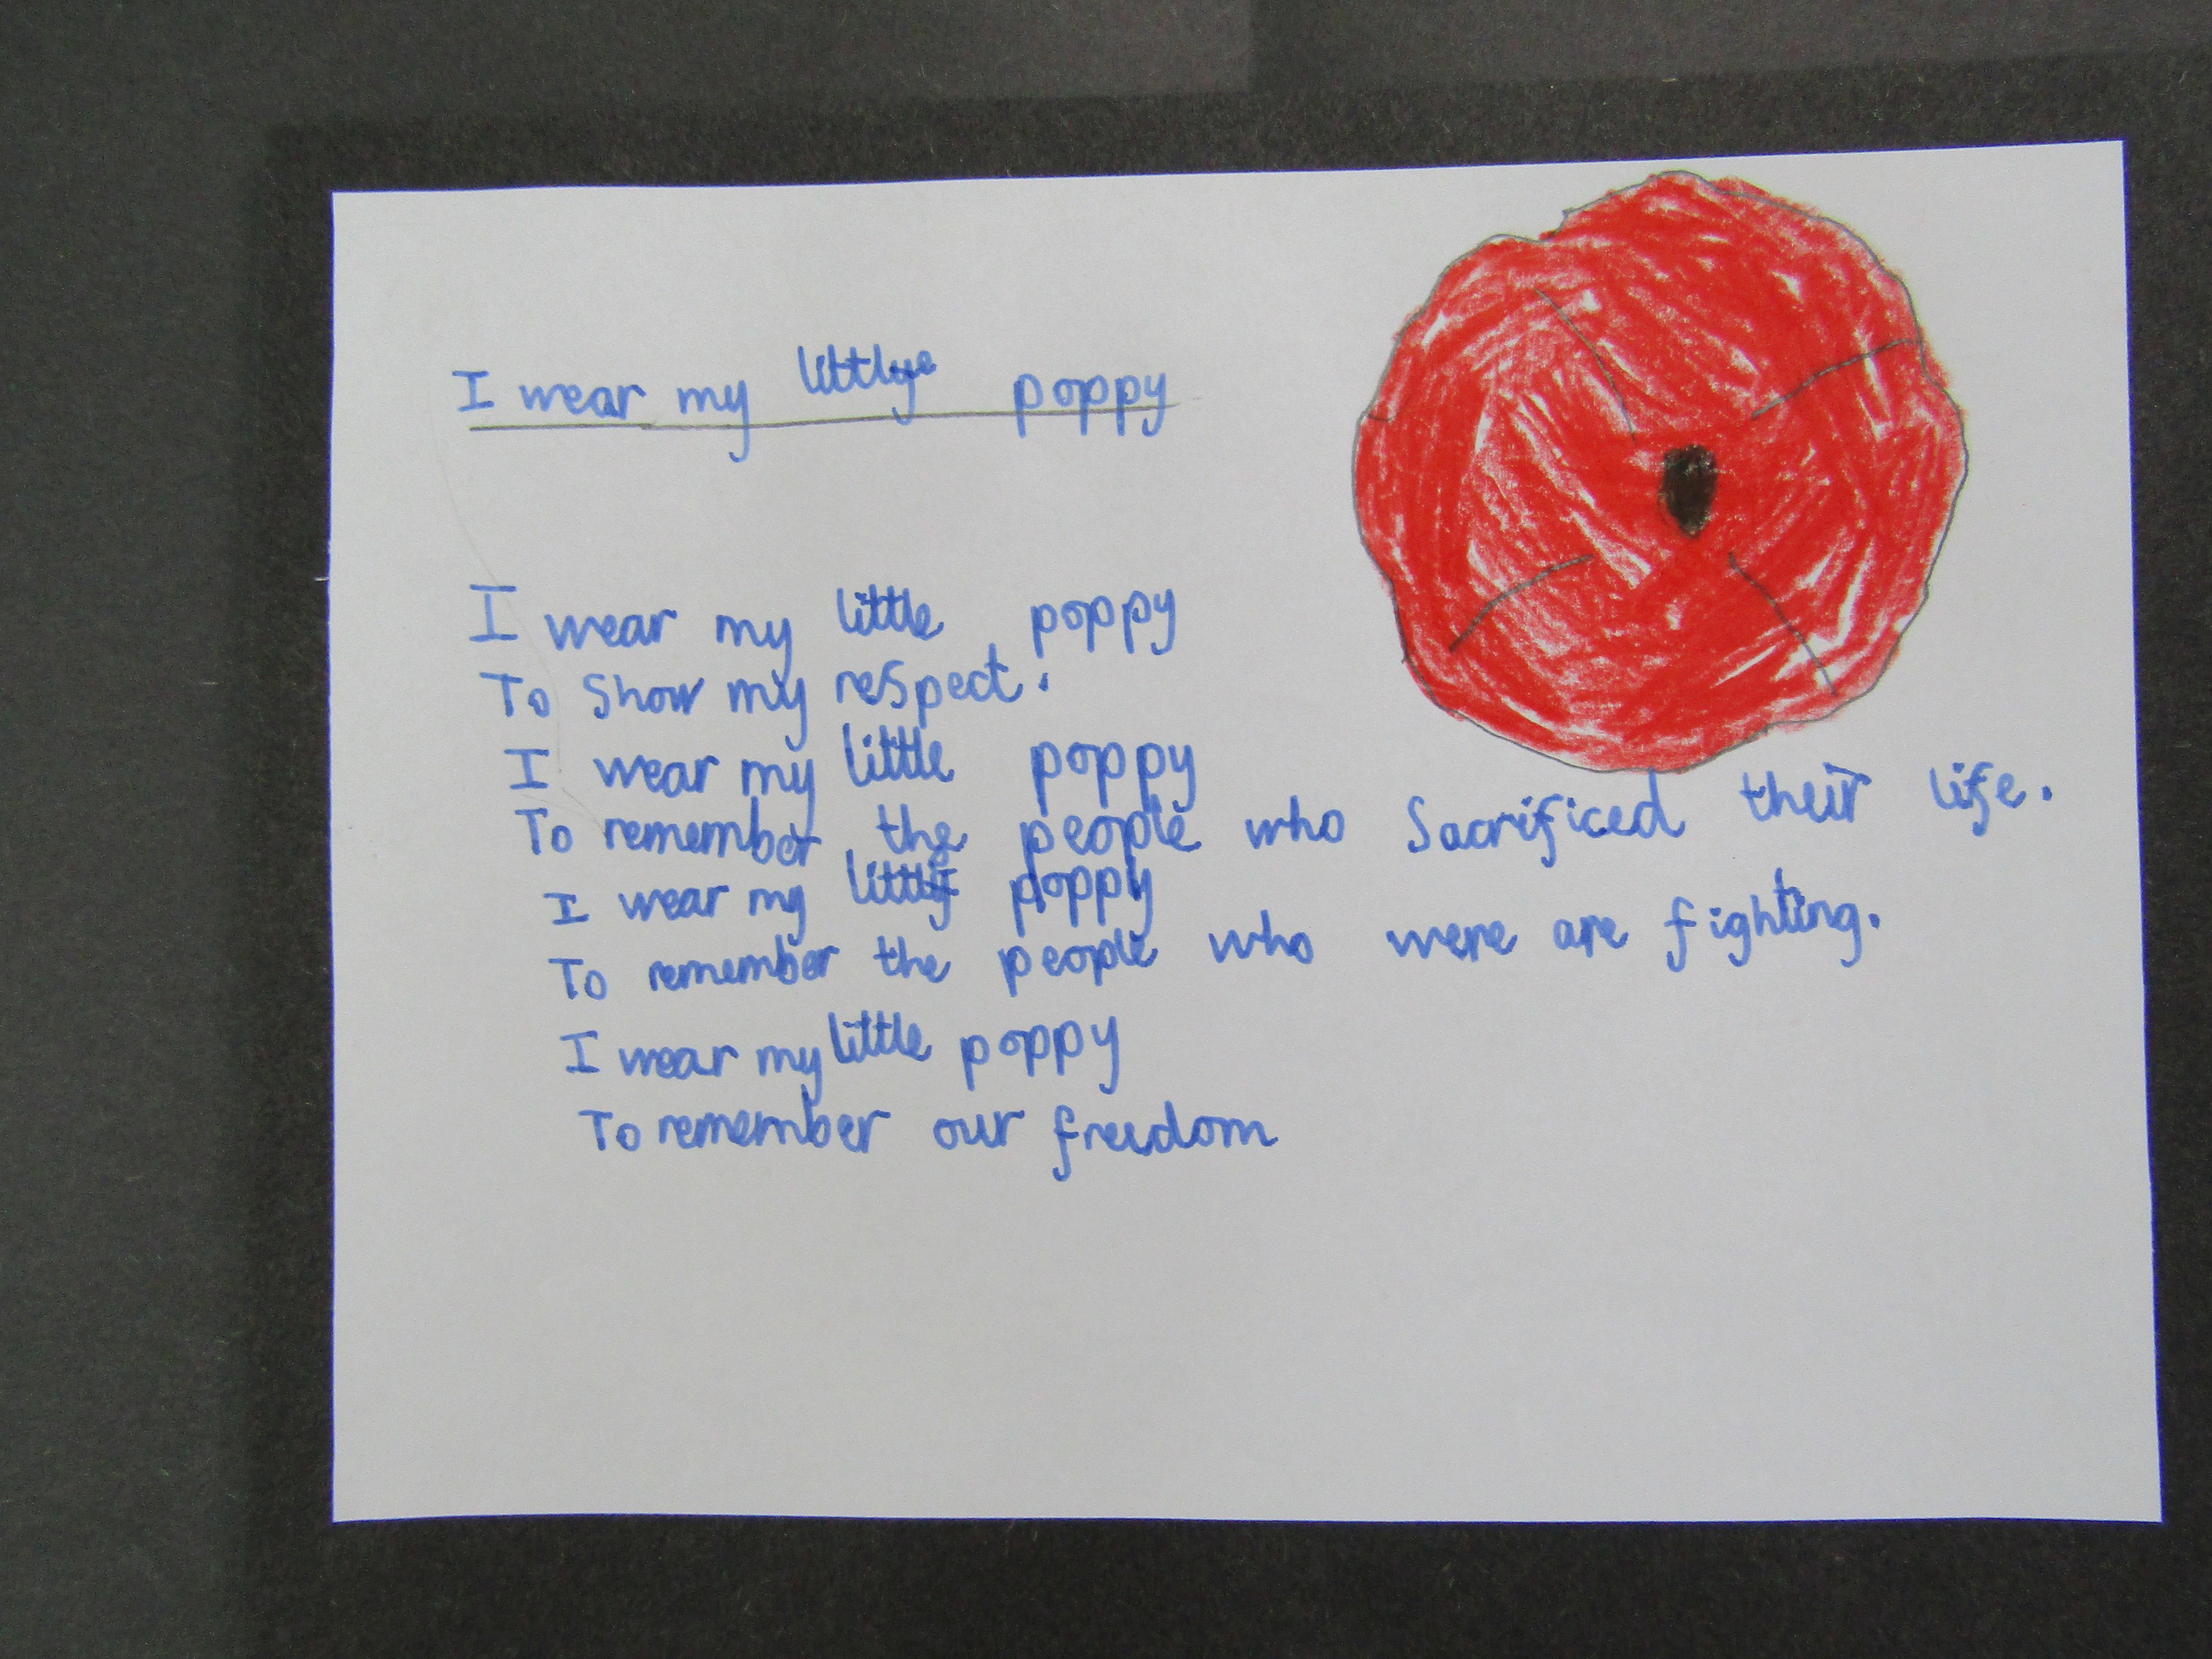 I wear my little poppy
I wear my little poppy
To Show my respect.
I wear my little poppy
To remember the people who Sacrificed their life.
I wear my little poppy
To remember the people who were are fighting.
I wear my little poppy
To remember our freedom